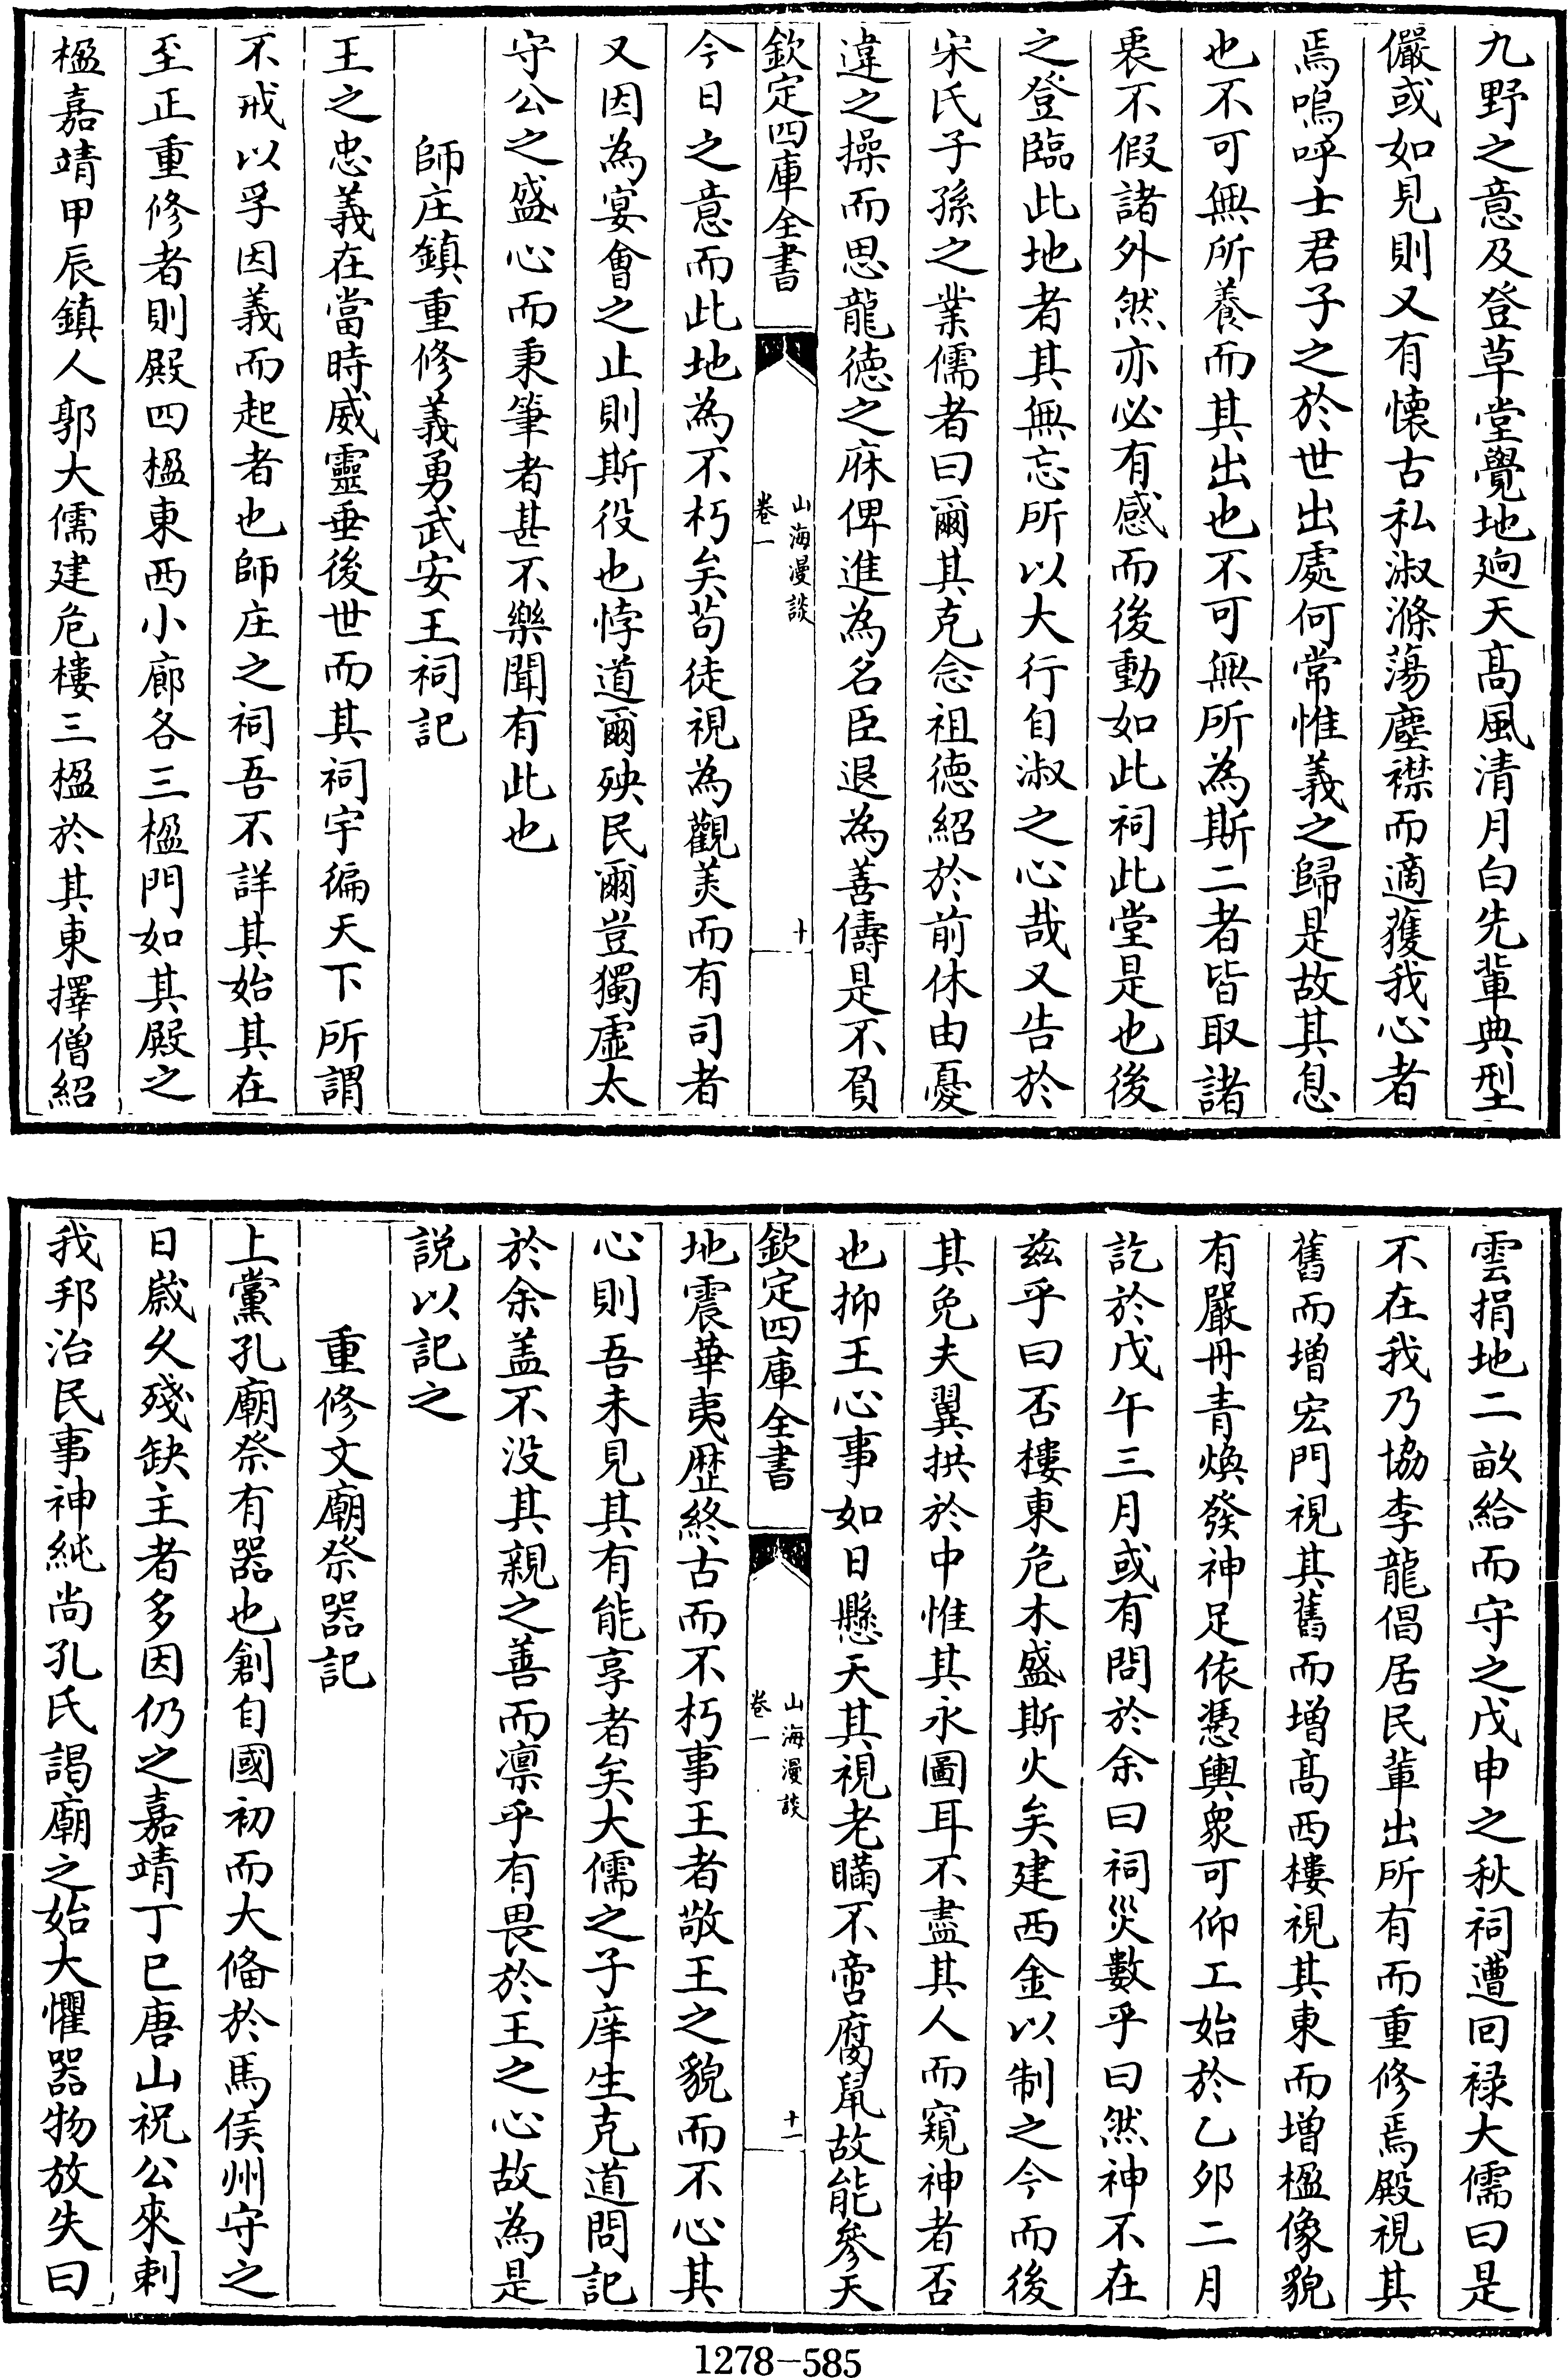 九野之意及登草堂覺地逈天髙風清月白先軰典型
儼或如見則又有懐古私淑滌蕩塵襟而適獲我心者
焉嗚呼士君子之於世出處何常惟義之歸是故其息
也不可無所養而其出也不可無所為斯二者皆取諸
裏不假諸外然亦必有感而後動如此祠此堂是也後
之登臨此地者其無忘所以大行自淑之心哉又告於
宋氏子孫之業儒者曰爾其克念祖徳紹於前休由憂
違之操而思龍徳之庥俾進為名臣退為善儔是不負
欽定四庫全書
山海漫談
卷一
十
今日之意而此地為不朽矣茍徒視為觀美而有司者
又因為宴會之止則斯役也悖道爾殃民爾豈獨虛太
守公之盛心而秉筆者甚不樂聞有此也
師庄鎮重修義勇武安王祠記
王之忠義在當時威靈垂後世而其祠宇徧天下所謂
不戒以孚因義而起者也師庄之祠吾不詳其始其在
至正重修者則殿四楹東西小廊各三楹門如其殿之
楹嘉靖甲辰鎮人郭大儒建危樓三楹於其東擇僧紹
雲捐地二畝給而守之戊申之秋祠遭回禄大儒曰是
不在我乃協李龍倡居民軰出所有而重修焉殿視其
舊而增宏門視其舊而增髙西樓視其東而增楹像貌
有嚴丹青煥發神足依憑輿衆可仰工始於乙夘二月
訖於戊午三月或有問於余曰祠災數乎曰然神不在
兹乎曰否樓東危木盛斯火矣建西金以制之今而後
其免夫翼拱於中惟其永圖耳不盡其人而窺神者否
也抑王心事如日懸天其視老瞞不啻腐鼠故能參天
欽定四庫全書
山海漫談
卷一
十一
地震華夷歴終古而不朽事王者敬王之貌而不心其
心則吾未見其有能享者矣大儒之子庠生克道問記
於余盖不没其親之善而凛乎有畏於王之心故為是
説以記之
重修文廟祭器記
上黨孔廟祭有器也創自國初而大備於馬侯州守之
日嵗久殘缺主者多因仍之嘉靖丁巳唐山祝公來刺
我邦治民事神純尚孔氏謁廟之始大懼器物放失曰
1278-585